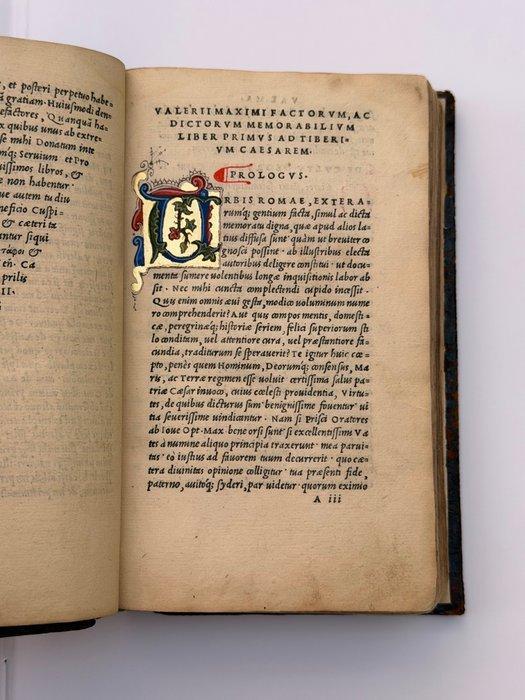 , et posteri perpetuo habe=
gratiam. Huiusmodi den
factores, Quanquã ha=
x quibus unus ab extre
si mihi Donatum inte
umq; Seruium et Pro
uissimos libros, &
non habentur.
ue autem tu diu
neficio Cuspi-
, & cæteri ta
ntur siqui
Ca
prilis
II.
VALERII MAXIMI FACTORVM, AC
DICTORVM MEMORABILIVM
LIBER PRIMVS AD TIBERI-
VM CAESAREM.
PROLOGVS.
VRBIS ROMAE, EXTERA=
rumq; gentium facta, simul ac dicta
memoratu digna, quæ apud alios la
tius diffusa sunt quàm ut breuiter co
gnosci possint ab illustribus electa
autoribus deligere constitui ut docu=
menta sumere uolentibus longæ inquisitionis labor ab
sit. Nec mihi cuncta complectendi cupido incessit.
Quis enim omnis æui gesta, modico uoluminum nume
ro comprehenderit? Aut quis compos mentis, domesti=
cæ, peregrinæq; historiæ seriem, felici superiorum sti
lo conditam, uel attentiore cura, uel præstantiore fa=
cundia, traditurum se sperauerit? Te igitur huic cœ=
pto, penès quem Hominum, Deorumq; consensus, Ma
ris, ac Terræ regimen esse uoluit certissima salus pa=
triæ Cæsar inuoco, cuius cœlesti prouidentia, Virtu=
tes, de quibus dicturus sum benignissime fouentur ui
tia seuerissime uindicantur. Nam si Prisci Oratores
ab Ioue Opt. Max. bene orsi sunt si excellentissimi Va
tes à numine aliquo principia traxerunt mea parui=
tas eò iustius ad fauorem tuum decurrerit quo cæ=
tera diuinitas opinione colligitur tua præsenti fide,
paterno, auitoq; syderi, par uidetur quorum eximio
A iii